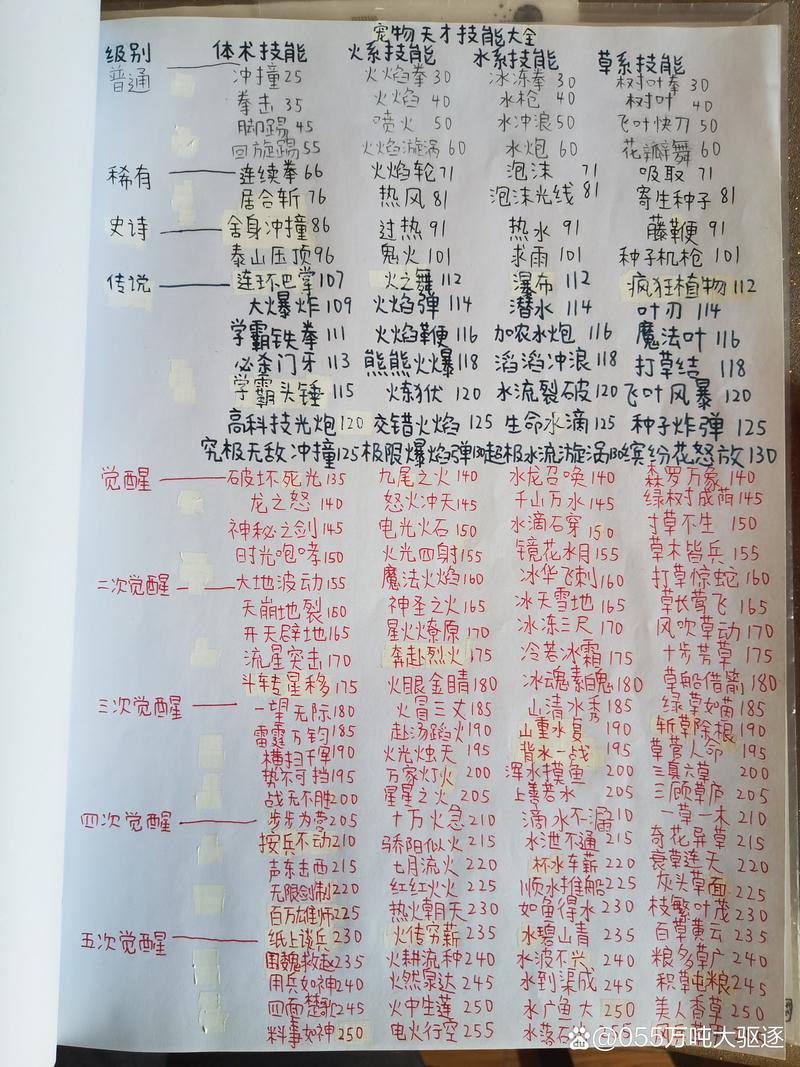 宠物天才技能大全
级别 体术技能 火系技能 水系技能 草系技能
普通 冲撞25 火焰拳30 冰冻拳30 树叶拳30
拳击35 火焰40 水枪40 树叶40
脚踢45 喷火50 水冲浪50 飞叶快刀50
回旋踢55 火焰旋涡60 水炮60 花瓣舞60
稀有 连续拳66 火焰轮71 泡沫71 吸取71
居合斩76 热风81 泡沫光线81 寄生种子81
史诗 舍身冲撞86 过热91 热水91 藤鞭91
泰山压顶96 鬼火101 求雨101 种子机枪101
传说 连环巴掌107 火之舞112 瀑布112 疯狂植物112
大火爆炸109 火焰弹114 潜水114 叶刃114
学霸铁拳111 火焰鞭116 加农水炮116 魔法叶116
必杀门牙113 熊熊火爆118 滔滔冲浪118 打草结118
学霸头锤115 火炼狱120 水流裂破120 飞叶风暴120
高科技光炮120 交错火焰125 生命水滴125 种子炸弹125
究极无敌冲撞125 极限爆焰弹130 超极水流旋涡130 缤纷花怒放130
觉醒 破坏死光135 九尾之火140 水龙召唤140 森罗万象140
龙之怒140 怒火冲天145 千山万水145 绿树成荫145
神秘之剑145 电光火石150 水滴石穿150 寸草不生150
时光咆哮150 火光四射155 镜花水月155 草木皆兵155
二次觉醒 大地波动155 魔法火焰160 冰华飞刺160 打草惊蛇160
天崩地裂160 神圣之火165 冰天雪地165 草长莺飞165
开天辟地165 星火燎原170 冰冻三尺170 风吹草动170
流星突击170 奔赴烈火175 冷若冰霜175 十步芳草175
斗转星移175 火眼金睛180 冰魂素魄180 草船借箭180
三次觉醒 一望无际180 火冒三丈185 山清水秀185 绿草如茵185
雷霆万钧185 赴汤蹈火190 山重水复190 斩草除根190
横扫千军190 火光烛天195 背水一战195 草菅人命195
势不可挡195 万家灯火200 浑水摸鱼200 三真六草200
战无不胜200 星星之火205 上善若水205 三顾草庐205
四次觉醒 步步为营205 十万火急210 滴水不漏210 一草一木210
按兵不动210 骄阳似火215 水泄不通215 奇花异草215
声东击西215 七月流火220 杯水车薪220 衰草连天220
无限剑制220 红红火火225 顺水推船225 灰头草面225
百万雄师225 热火朝天230 如鱼得水230 枝繁叶茂230
五次觉醒 纸上谈兵230 火传穷薪235 水碧山青235 百草黄云235
围魏救赵235 火耕流种240 水波不兴240 粮多草广240
用兵如神240 火然泉达245 水到渠成245 积草屯粮245
四面楚歌245 火中生莲250 水广鱼大250 美人香草250
料事如神250 电火行空255 水落石
@055万吨大驱逐